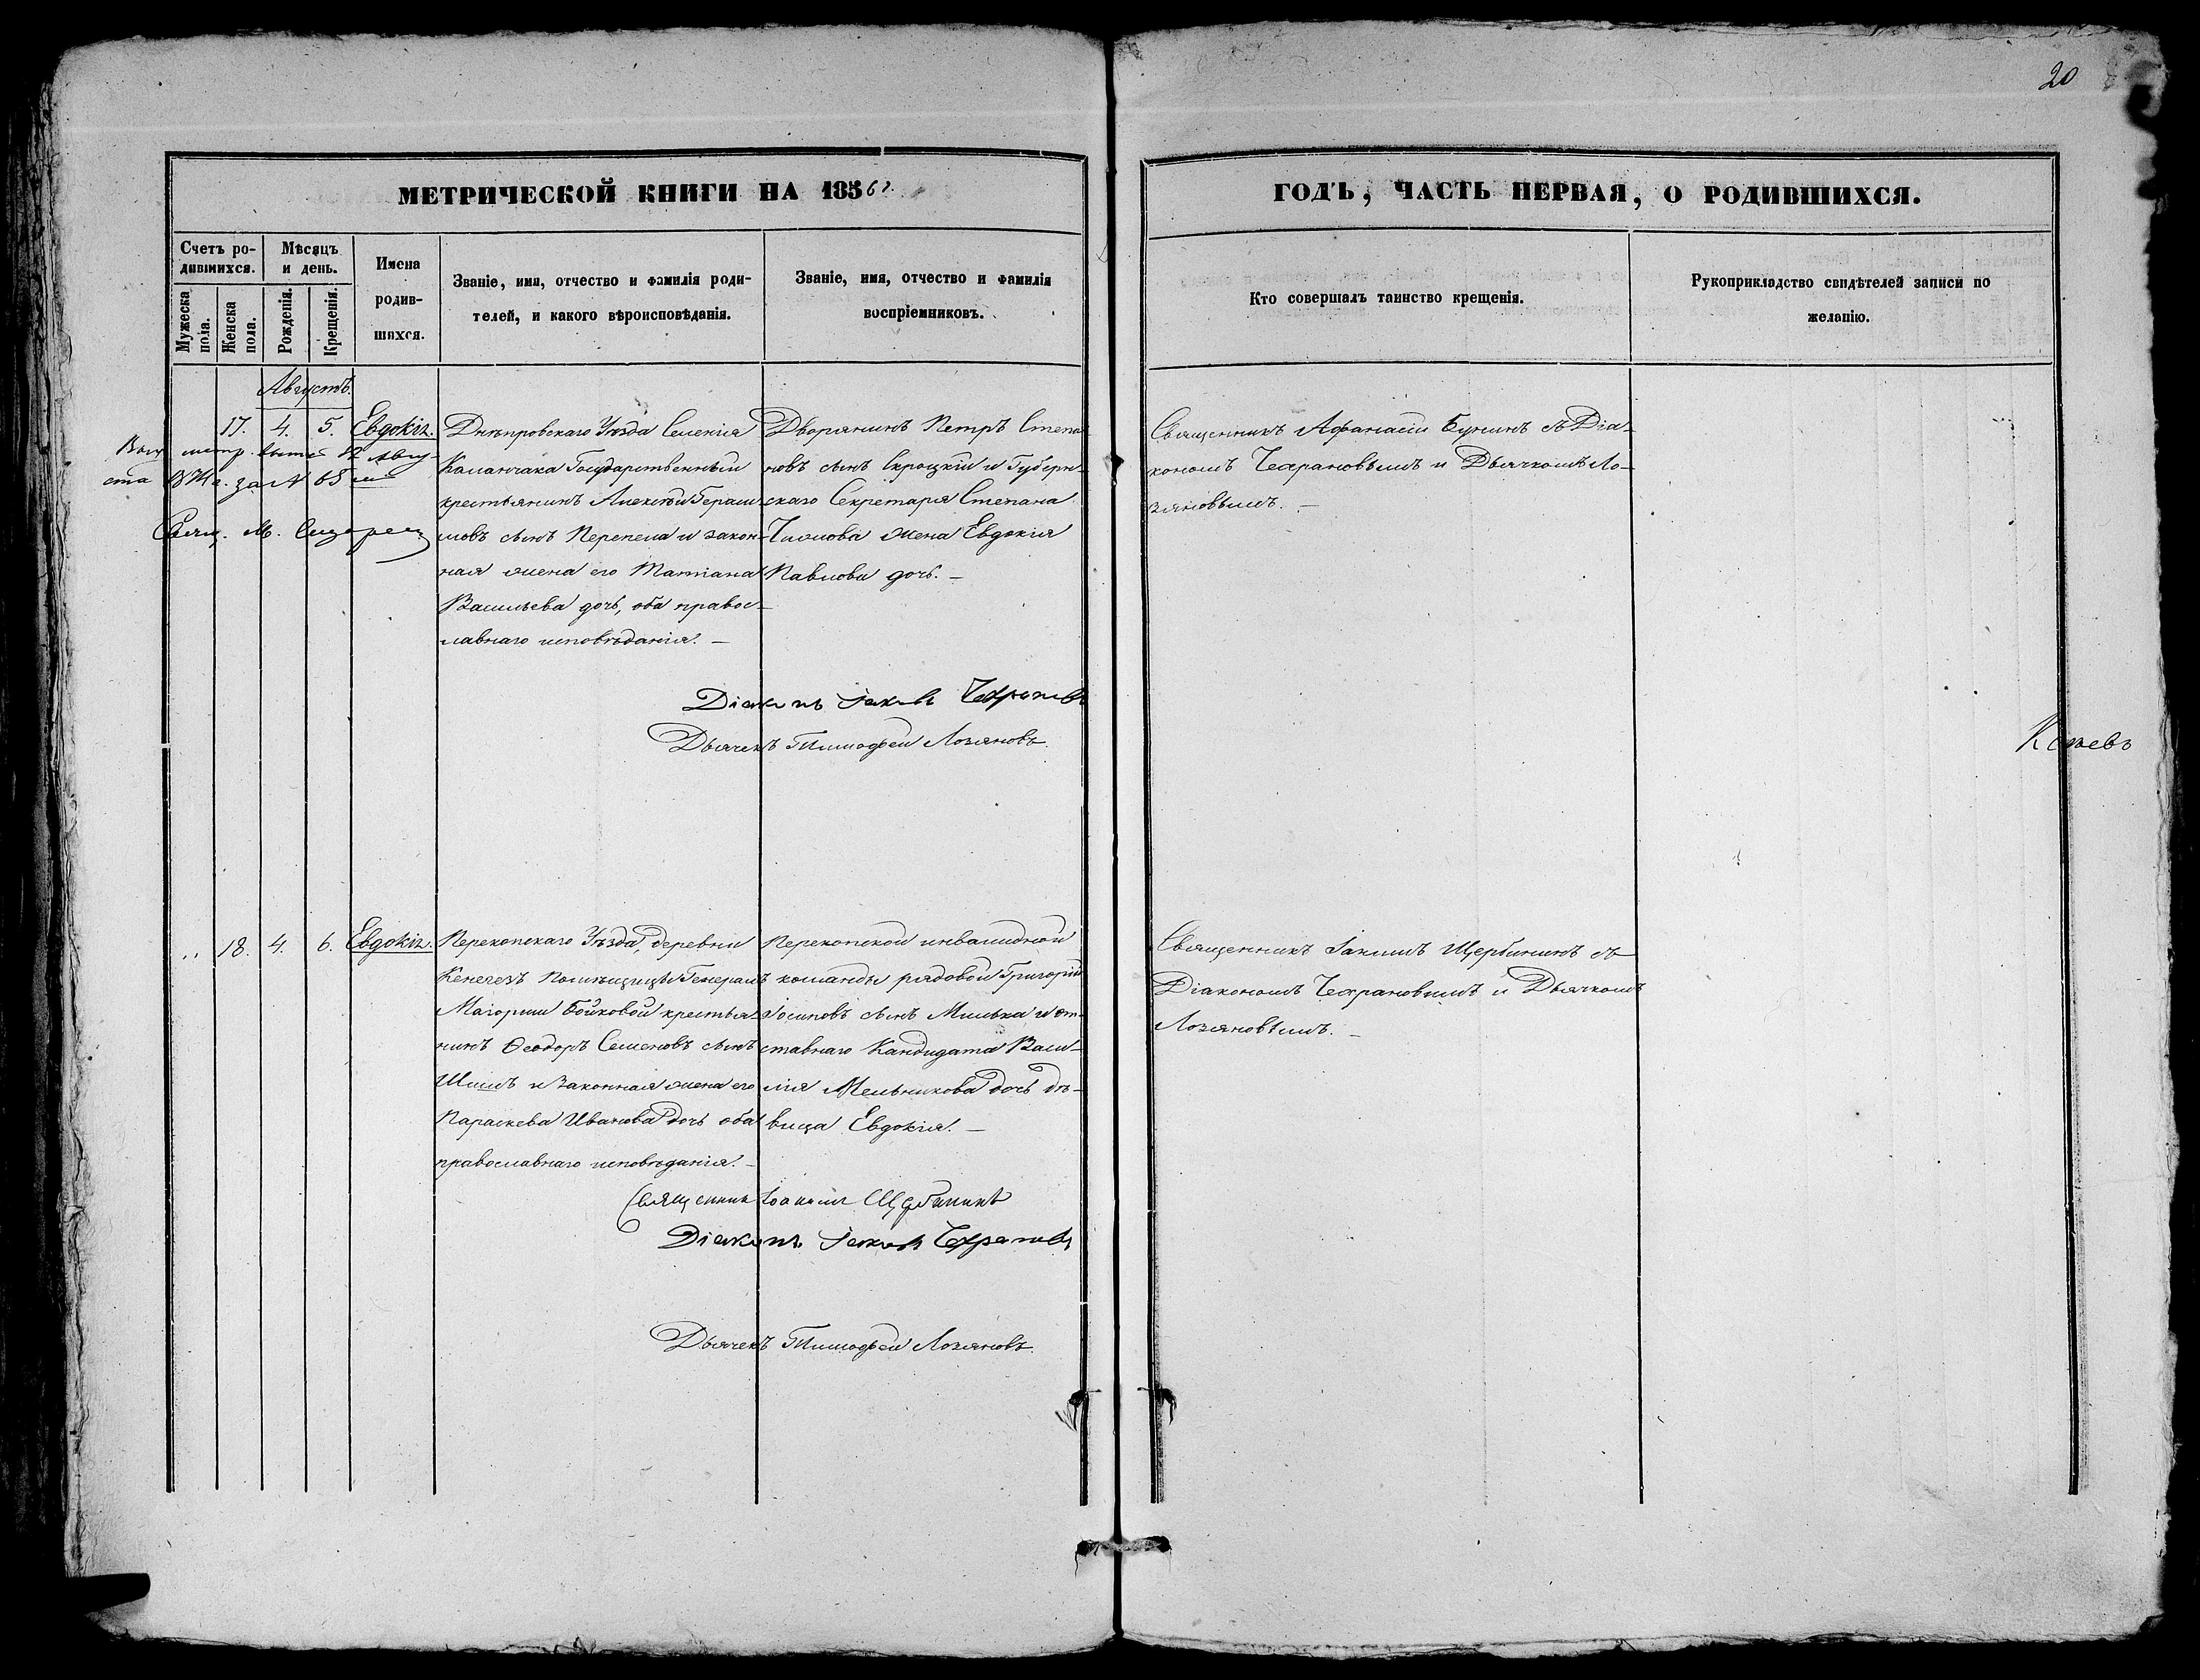 20
МЕТРИЧЕСКОЙ КНИГИ НА 185
ГОДЪ, ЧАСТЬ ПЕРВАЯ, О РОДИВШИХСЯ.
Счетъ ро-
дившихся.
Мужеска
пола.
Женска
пола.
Мѣсяцъ
и день.
Рожденія.
Крещенія.
Имена
родив-
шихся.
Званіе, имя, отчество и фамилія роди-
телей, и какого вѣроисповѣданія.
Званіе, имя, отчество и фамилія
воспріемниковъ.
Кто совершалъ таинство крещенія.
Рукоприкладство свидѣтелей записи по
желанію.
Августъ.
17. 4. 5. Евдокія.
метр. 12 Авгу-
ста за № 68
Свящ. М.
Днѣпровскаго Уѣзда Селенія
Каланчака Государственный
крестьянинъ Алексѣй Гераси
мовъ сынъ Перепела и закон-
ная жена его Татіана
Васильева дочь, оба правос-
лавнаго исповѣданія. —
Дворянинъ Петръ Степа
новъ сынъ Скроцкій и Губерн-
скаго Секретаря Степана
жена Евдокія
Павлова дочь. —
Священникъ Афанасій Бунинъ съ Діа-
кономъ Чехрановымъ и Дьячкомъ Ло-
зяновымъ. —
Діаконъ Іаковъ Чехрановъ
Дьячекъ Тимофей Лозяновъ.
18. 4. 6. Евдокія.
Перекопскаго Уѣзда, деревни
Кенегезъ Помѣщицы Генералъ
Маіорши Бойковой крестья
нинъ Ѳеодоръ Семеновъ сынъ
и законная жена его
Параскева Иванова дочь оба
православнаго исповѣданія. —
Перекопской инвалидной
команды рядовой Григорій
Іосиповъ сынъ Милька и от-
ставнаго Кандидата Васи-
лія Мельникова дочь дѣ-
вица Евдокія. —
Священникъ Іакимъ Щербининъ съ
Діакономъ Чехрановымъ и Дьячкомъ
Лозяновымъ. —
Священникъ Іоакимъ Щербининъ
Діаконъ Іаковъ Чехрановъ
Дьячекъ Тимофей Лозяновъ.